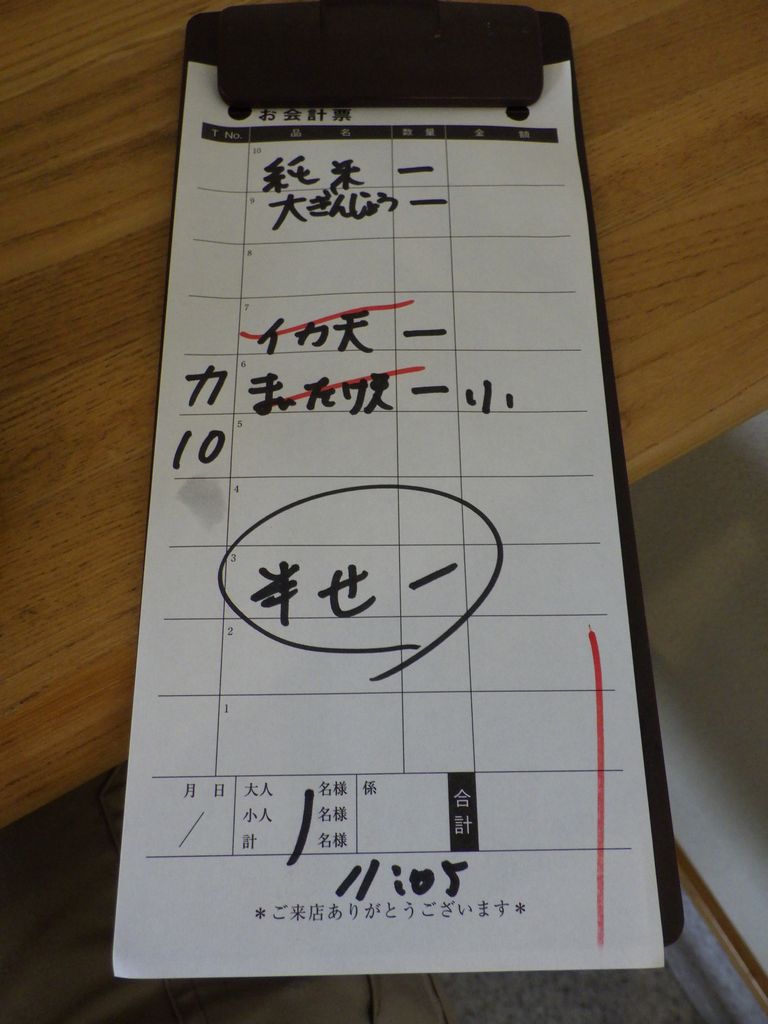 お会計票
T No. 品名 数量 金額
10 純米 一
9 大ぎんじょう 一
8
7 イカ天 一
カ 6 まいたけ天 一 小
10 5
4
3 半せ 一
2
1
月 日 大人 名様 係 合計
/ 小人 名様
計 名様
11:05
*ご来店ありがとうございます*